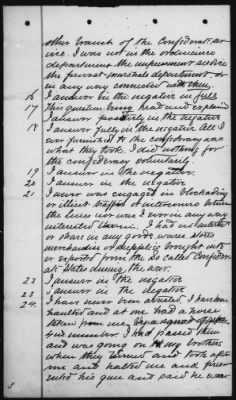 other branch of the Confederate ser-
vice. I was not in the ordinance
department the impressment service
the provost marshals department or
in any way connected with them.
16 I answer in the negative in full
17 This question being read and explained
I answer positively in the negative
18 I answer fully in the negative all I
ever furnished to the confederacy was
what they took, I did nothing for
the confederacy voluntarily.
19 I answer in the negative.
20 I answer in the negative
21 I never was engaged in blockading
or illicit traffic or intercourse between
the lines nor was I ever in any way
interested therein. I had no interest
or share in any goods wares stores
merchandise or supplies brought into
or exported from the so called Confeder-
ate States during the war.
22 I answer in the negative
23 I answer in the negative
24. I have never been arrested. I have been
halted and at one had a horse
taken from me,
I had passed them
and was going on to my brothers
when they turned and took after
me and halted me and
his gun and said he